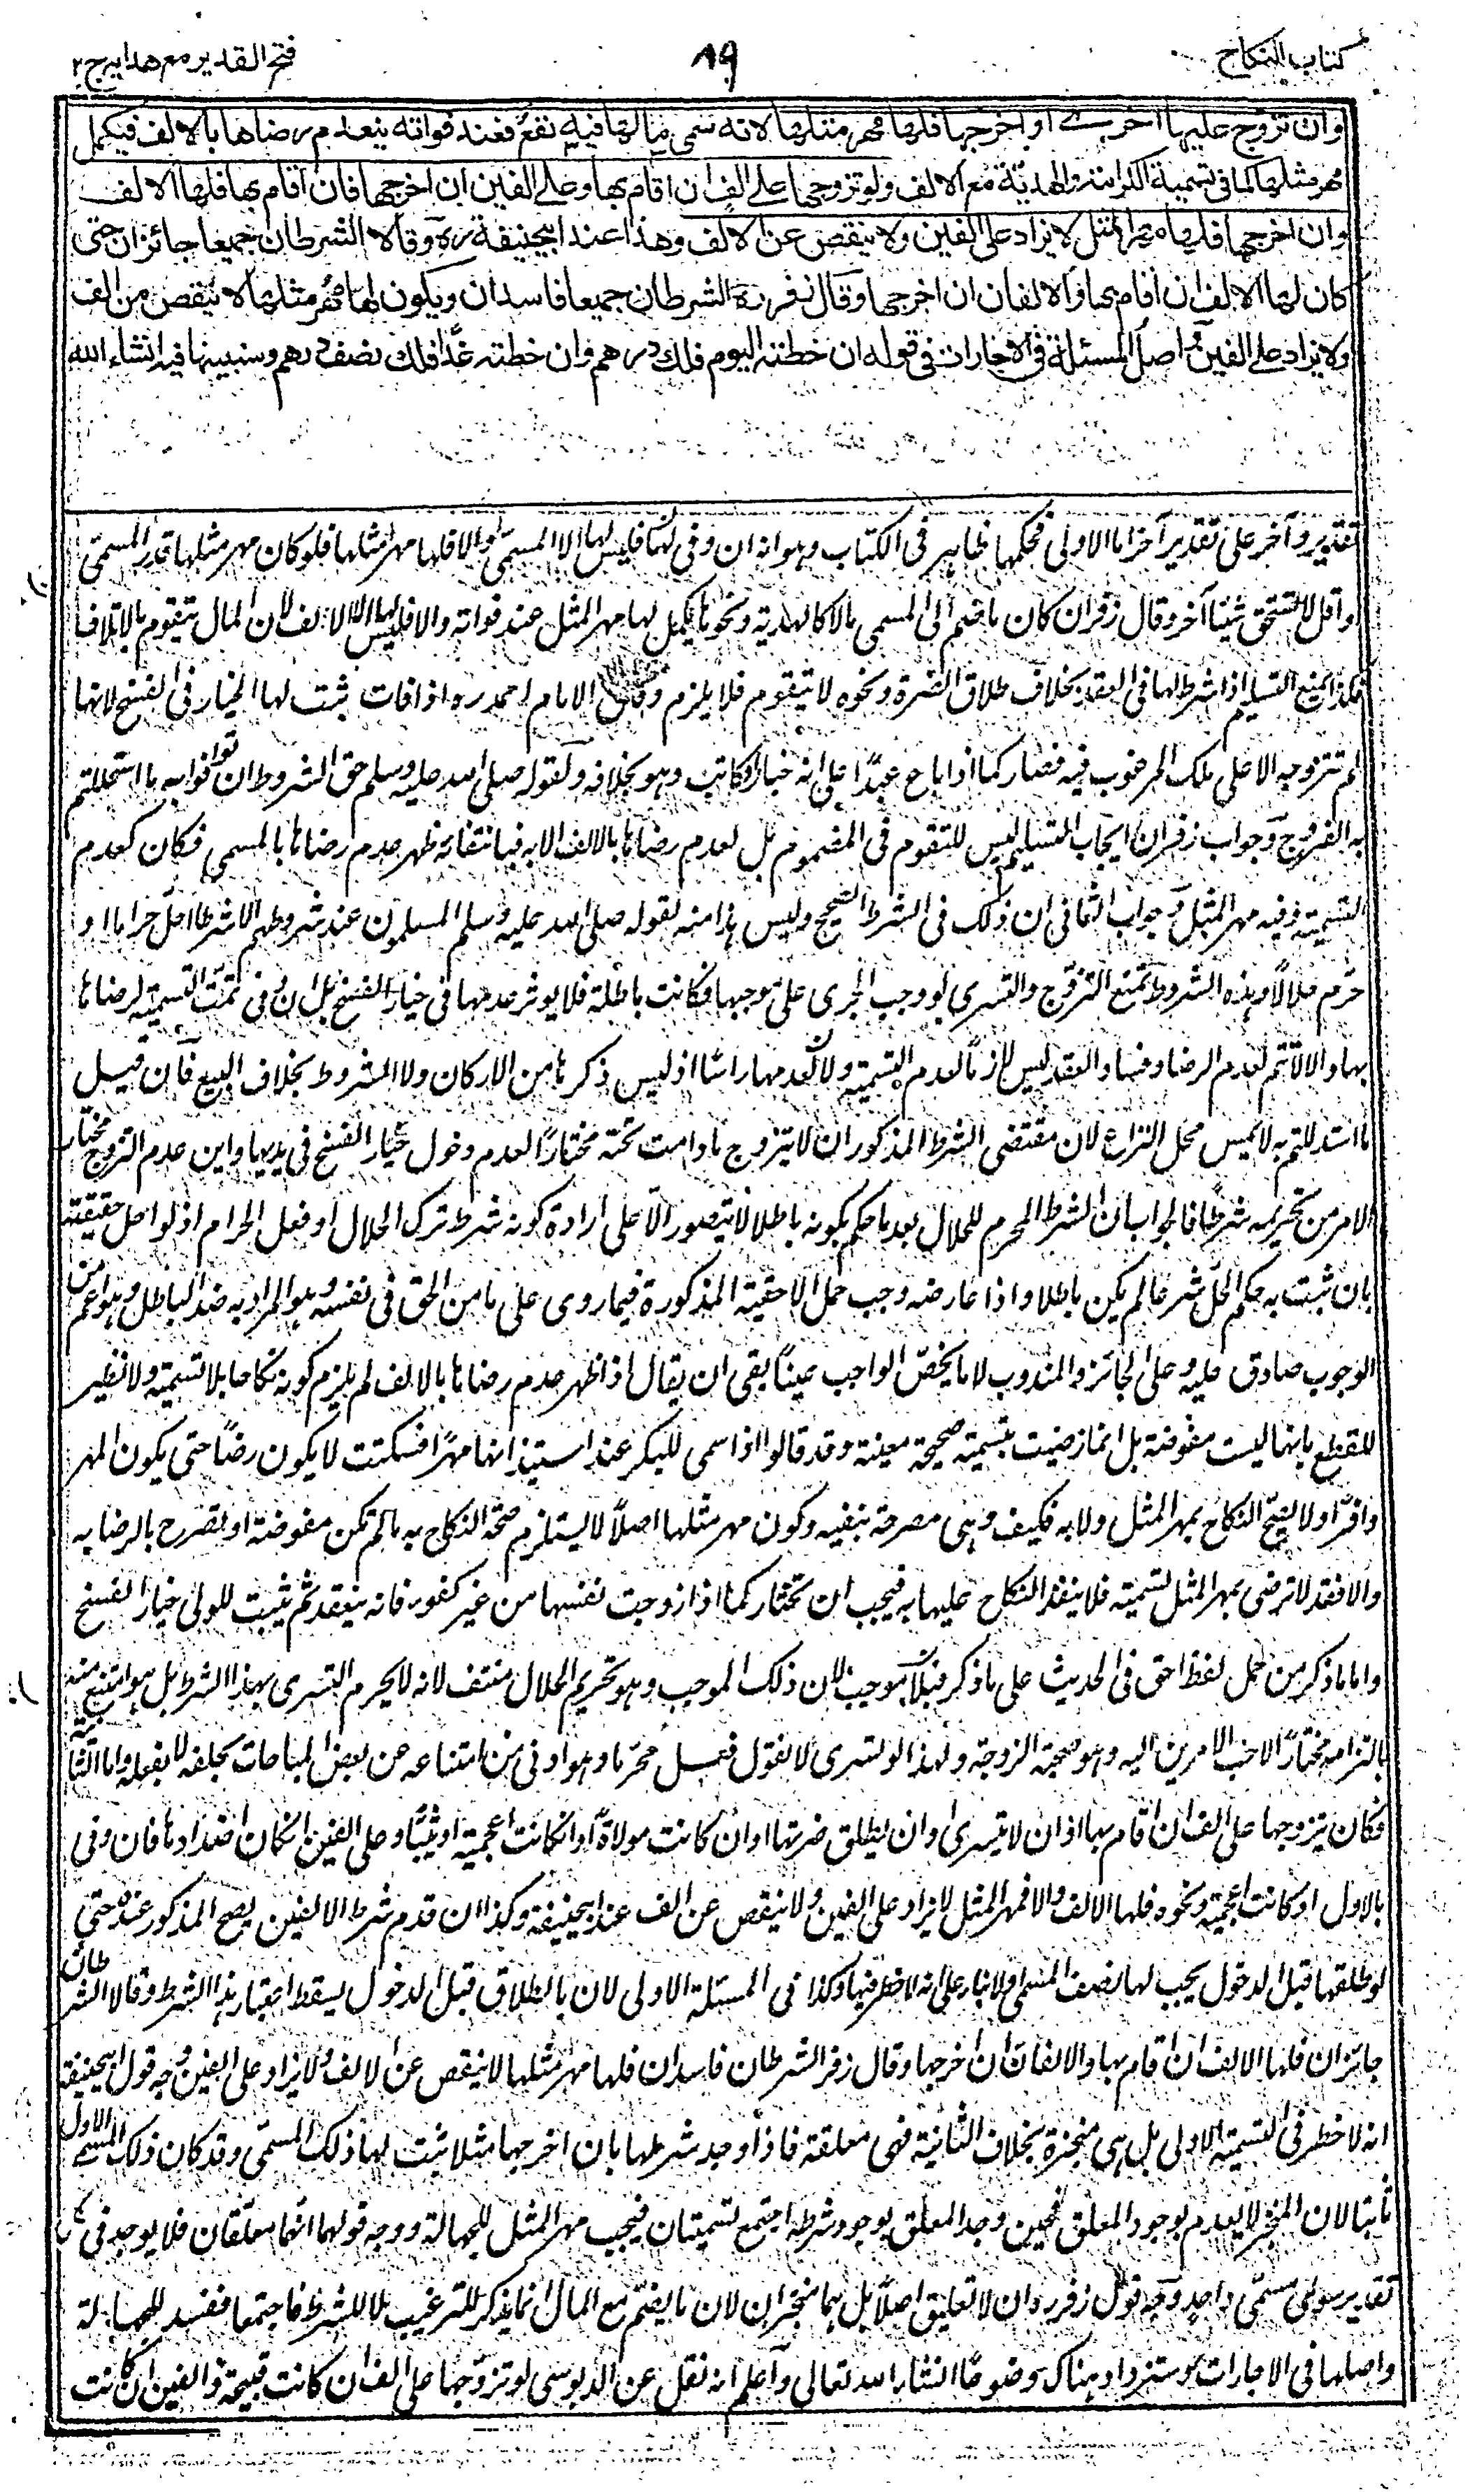 كتاب النكاح
٨٩
فتح القدير مع هدايه ج ٢
وان تزوج عليها اخرى او اخرجها فلها مهر مثلها لانه سمى ما لها فيه نفع فعند فواته ينعدم رضاها بالالف فيكمل
مهر مثلها كما في تسمية الكرامة والهدية مع الالف ولو تزوجها على الف ان اقام بها وعلى الفين ان اخرجها فان اقام بها فلها الالف
وان اخرجها فلها مهر المثل لا يزاد على الفين ولا ينقص عن الالف وهذا عند ابيحنيفة ره وقالا الشرطان جميعا جائزان حتى
كان لها الالف ان اقام بها والالفان ان اخرجها وقال زفر ره الشرطان جميعا فاسدان ويكون لها مهر مثلها لا ينقص من الف
ولا يزاد على الفين واصل المسئلة في الاجارات في قوله ان خطته اليوم فلك درهم وان خطته غدا فلك نصف درهم وسنبينها فيه انشاء الله
تقدير وآخر على تقدير آخر اما الاولى فحكمها ظاهر في الكتاب وهو انه ان وفى لها فليس لها الا المسمى والا فلها مهر مثلها فلو كان مهر مثلها قدر المسمى
او اقل لا تستحق شيئا آخر وقال زفر ان كان ما ضم الى المسمى مالا كالهدية ونحوها يكمل لها مهر المثل عند فواته والا فليس لها الا الالف لان المال يتقوم بالاتلاف
فكذا بمنع التسليم اذا شرط لها في العقد بخلاف طلاق الضرة ونحوه لا يتقوم فلا يلزم وقال الامام احمد ره اذا فات ثبت لها الخيار في الفسخ لانها
لم تتزوجه الا على ملك المرغوب فيه فصار كما اذا باع عبدا على انه خباز او كاتب وهو بخلافه ولقوله صلى الله عليه وسلم حق الشروط ان توافوا به ما استحللتم
به الفروج وجواب زفر ان ايجاب التسليم ليس للتقوم في المضموم بل لعدم رضاها بالالف الا به فبانتفائه ظهر عدم رضاها بالمسمى فكان كعدم
التسمية وفيه مهر المثل وجواب الثاني ان ذلك في الشرط الصحيح وليس هذا منه لقوله صلى الله عليه وسلم المسلمون عند شروطهم الا شرطا احل حراما او
حرم حلالا وهذه الشروط تمنع التزوج والتسرى لو وجب الجرى على موجبها فكانت باطلة فلا يوثر عدمها في خيار الفسخ بل ان وفى تمت التسمية لرضاها
بها والا لا تتم لعدم الرضا وفساد العقد ليس لازما لعدم التسمية ولا لعدمها راسا اذ ليس ذكرها من الاركان ولا الشروط بخلاف البيع فان قيل
ما استدللتم به لا يمس محل النزاع لان مقتضى الشرط المذكور ان لا يتزوج ما دامت تحته مختارا لعدم دخول خيار الفسخ في يديها واين عدم التزوج مختار
الامر من تحريمه شرطا فالجواب ان الشرط المحرم للحلال بعد ما حكم بكونه باطلا لا يتصور الا على ارادة كونه شرط ترك الحلال او فعل الحرام اذ لو احل حقيقته
بان ثبت به حكم الحل شرعا لم يكن باطلا واذا عارضه وجب حمل الاحقية المذكورة فيما روى على ما من الحق في نفسه وهو المراد به ضد الباطل وهو اعم من
الوجوب صادق عليه وعلى الجائز والمندوب لا ما يخص الواجب عينا بقى ان يقال اذا ظهر عدم رضاها بالالف لم يلزم كونه نكاحا بلا تسمية ولا نظير
للقطع بانها ليست مفوضة بل انما رضيت بتسمية صحيحة معينة وقد قالوا اذا سمى للبكر عند استيذانها مهرا فسكتت لا يكون رضا حتى يكون المهر
وافرا ولا يصح النكاح بمهر المثل ولا به فكيف وهى مصرحة بنفيه وكون مهر مثلها اصلا لا يستلزم صحة النكاح به ما لم تكن مفوضة او تصرح بالرضا به
والا فقد لا ترضى بمهر المثل لتسميته فلا ينفذ النكاح عليها به فيجب ان تختار كما اذا زوجت نفسها من غير كفوء فانه ينعقد ثم يثبت للولى خيار الفسخ
واما ما ذكر من حمل لفظ احق في الحديث على ما ذكر فبلا موجب لان ذلك الموجب وهو تحريم الحلال منتف لانه لا يحرم التسرى بهذا الشرط بل هو امتنع منه
بالتزامه مختارا لاحب الامرين اليه وهو صحبة الزوجة ولهذا لو تسرى لا نقول فعل محرما وهو ادنى من امتناعه عن بعض المباحات بحلفه لا يفعله واما الثانية
فكان يتزوجها على الف ان اقام بها او ان لا يتسرى او ان يطلق ضرتها او ان كانت مولاة او ان كانت اعجمية او ثيبا وعلى الفين ان كان اضدادها فان وفى
بالاول او كانت اعجمية ونحوه فلها الالف والا فمهر المثل لا يزاد على الفين ولا ينقص عن الف عند ابيحنيفة وكذا ان قدم شرط الالفين يصح المذكور عنده حتى
لو طلقها قبل الدخول يجب لها نصف المسمى اولا بناء على انه لا خطر فيها وكذا في المسئلة الاولى لان بالطلاق قبل الدخول يسقط اعتبار هذا الشرط وقالا الشرطان
جائزان فلها الالف ان اقام بها والالفان ان اخرجها وقال زفر الشرطان فاسدان فلها مهر مثلها لا ينقص عن الالف ولا يزاد على الفين وجه قول ابيحنيفة
انه لا خطر في التسمية الاولى بل هى منجزة بخلاف الثانية فهى معلقة فاذا وجد شرطها بان اخرجها مثلا ثبت لها ذلك المسمى وقد كان ذلك المسمى الاول
ثابتا لان المنجز لا يعدم بوجود المعلق فحين وجد المعلق بوجود شرطه اجتمع تسميتان فيجب مهر المثل للجهالة ووجه قولهما انهما معلقان فلا يوجد في كل
تقدير سوى مسمى واحد وجه قول زفر ره ان لا تعليق اصلا بل هما منجزان لان ما يضم مع المال انما يذكر للترغيب لا للشرط فاجتمعا ففسد للجهالة
واصلها في الاجارات وستزداد هناك وضوحا انشاء الله تعالى واعلم انه نقل عن الدبوسى لو تزوجها على الف ان كانت قبيحة والفين ان كانت